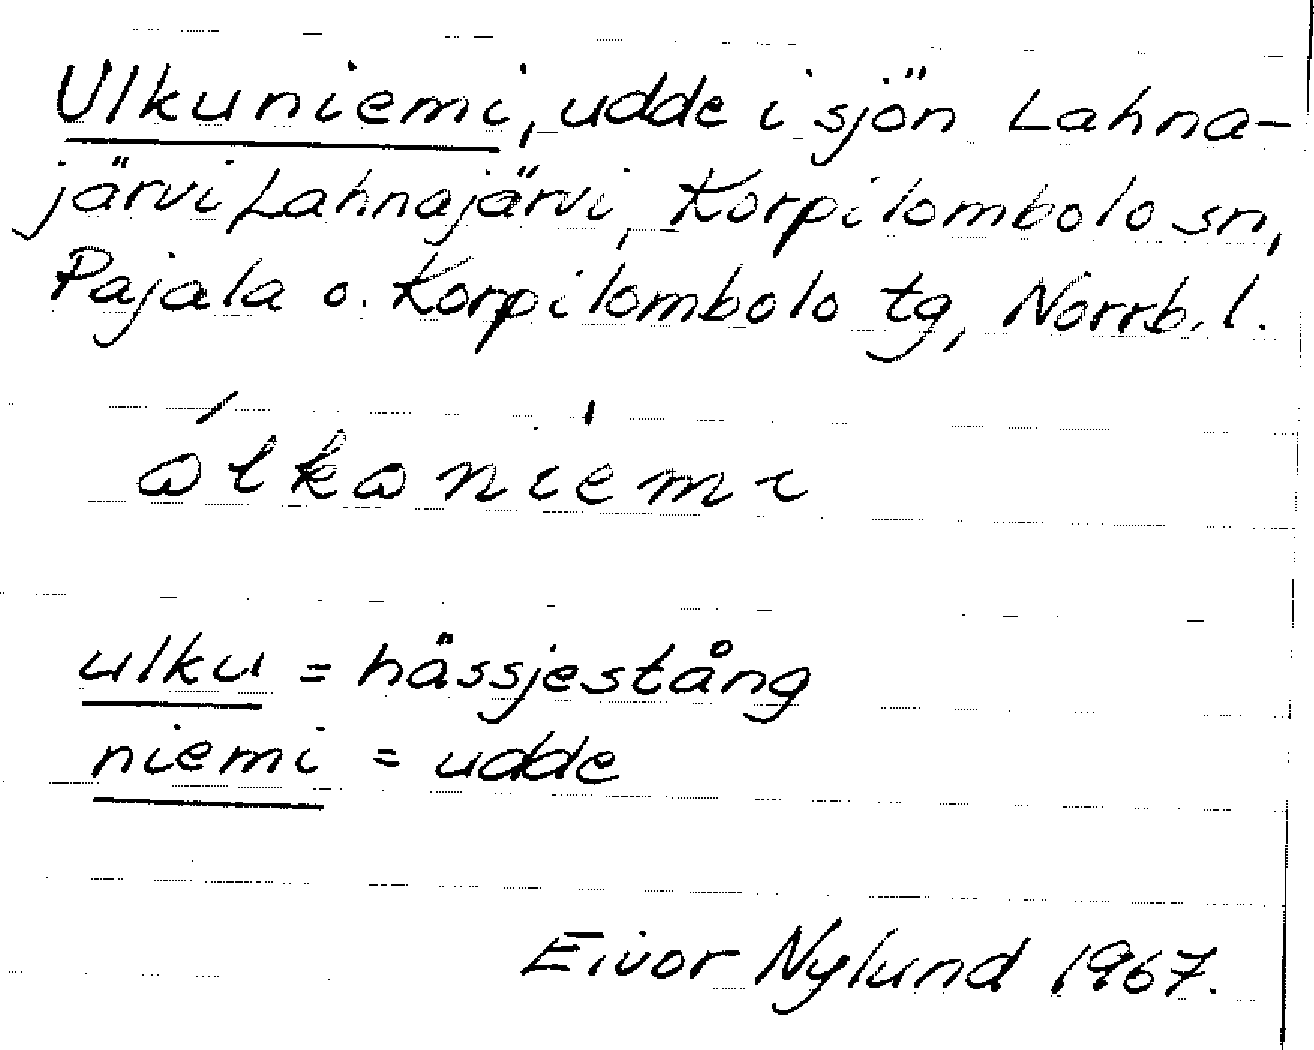 Ulkuniemi, udde i sjön Lahna-
järvi Lahnajärvi, Korpilombolo sn,
Pajala o. Korpilombolo tg, Norrb. l.
ulku = hässjestång
niemi = udde
Eivor Nylund 1967.